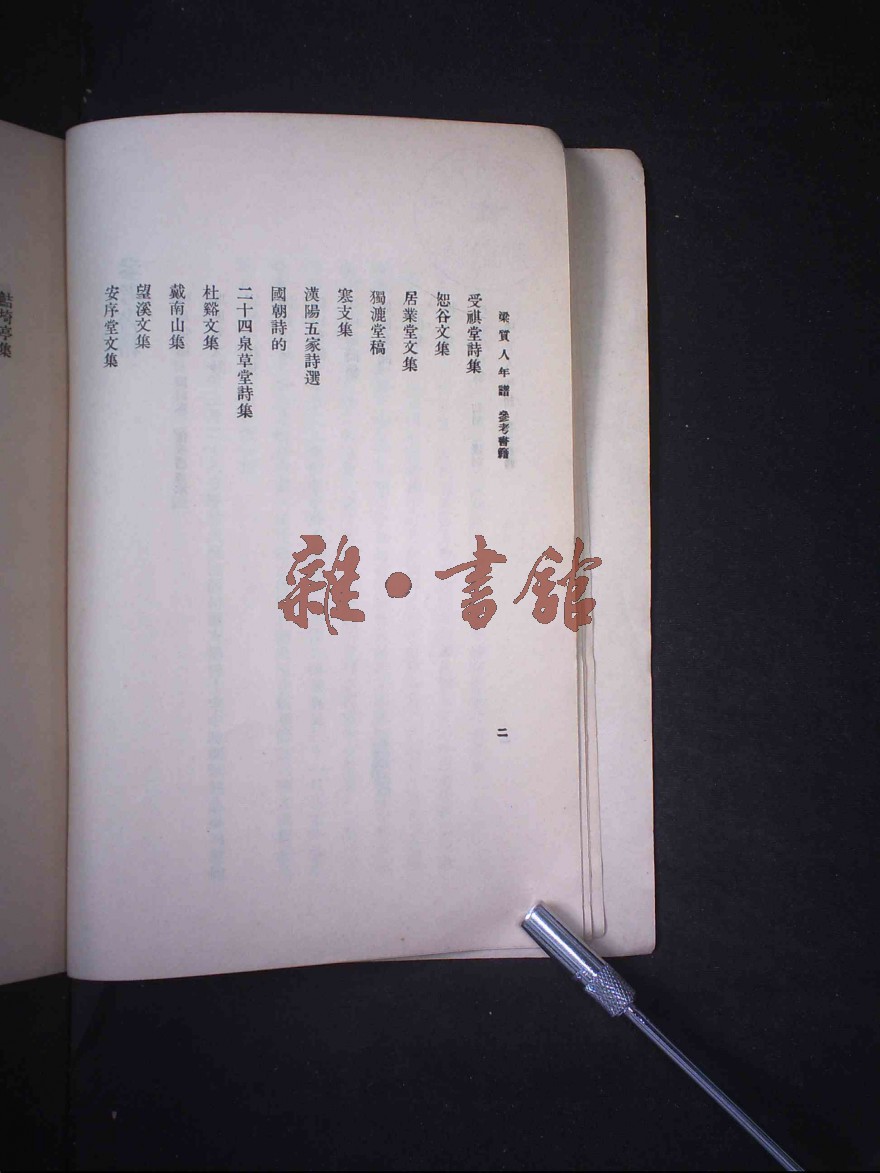 梁質人年譜 參考書籍
二
受祺堂詩集
恕谷文集
居業堂文集
獨漉堂稿
寒支集
漢陽五家詩選
國朝詩的
二十四泉草堂詩集
杜谿文集
戴南山集
望溪文集
安序堂文集
鮚埼亭集
雜·書館